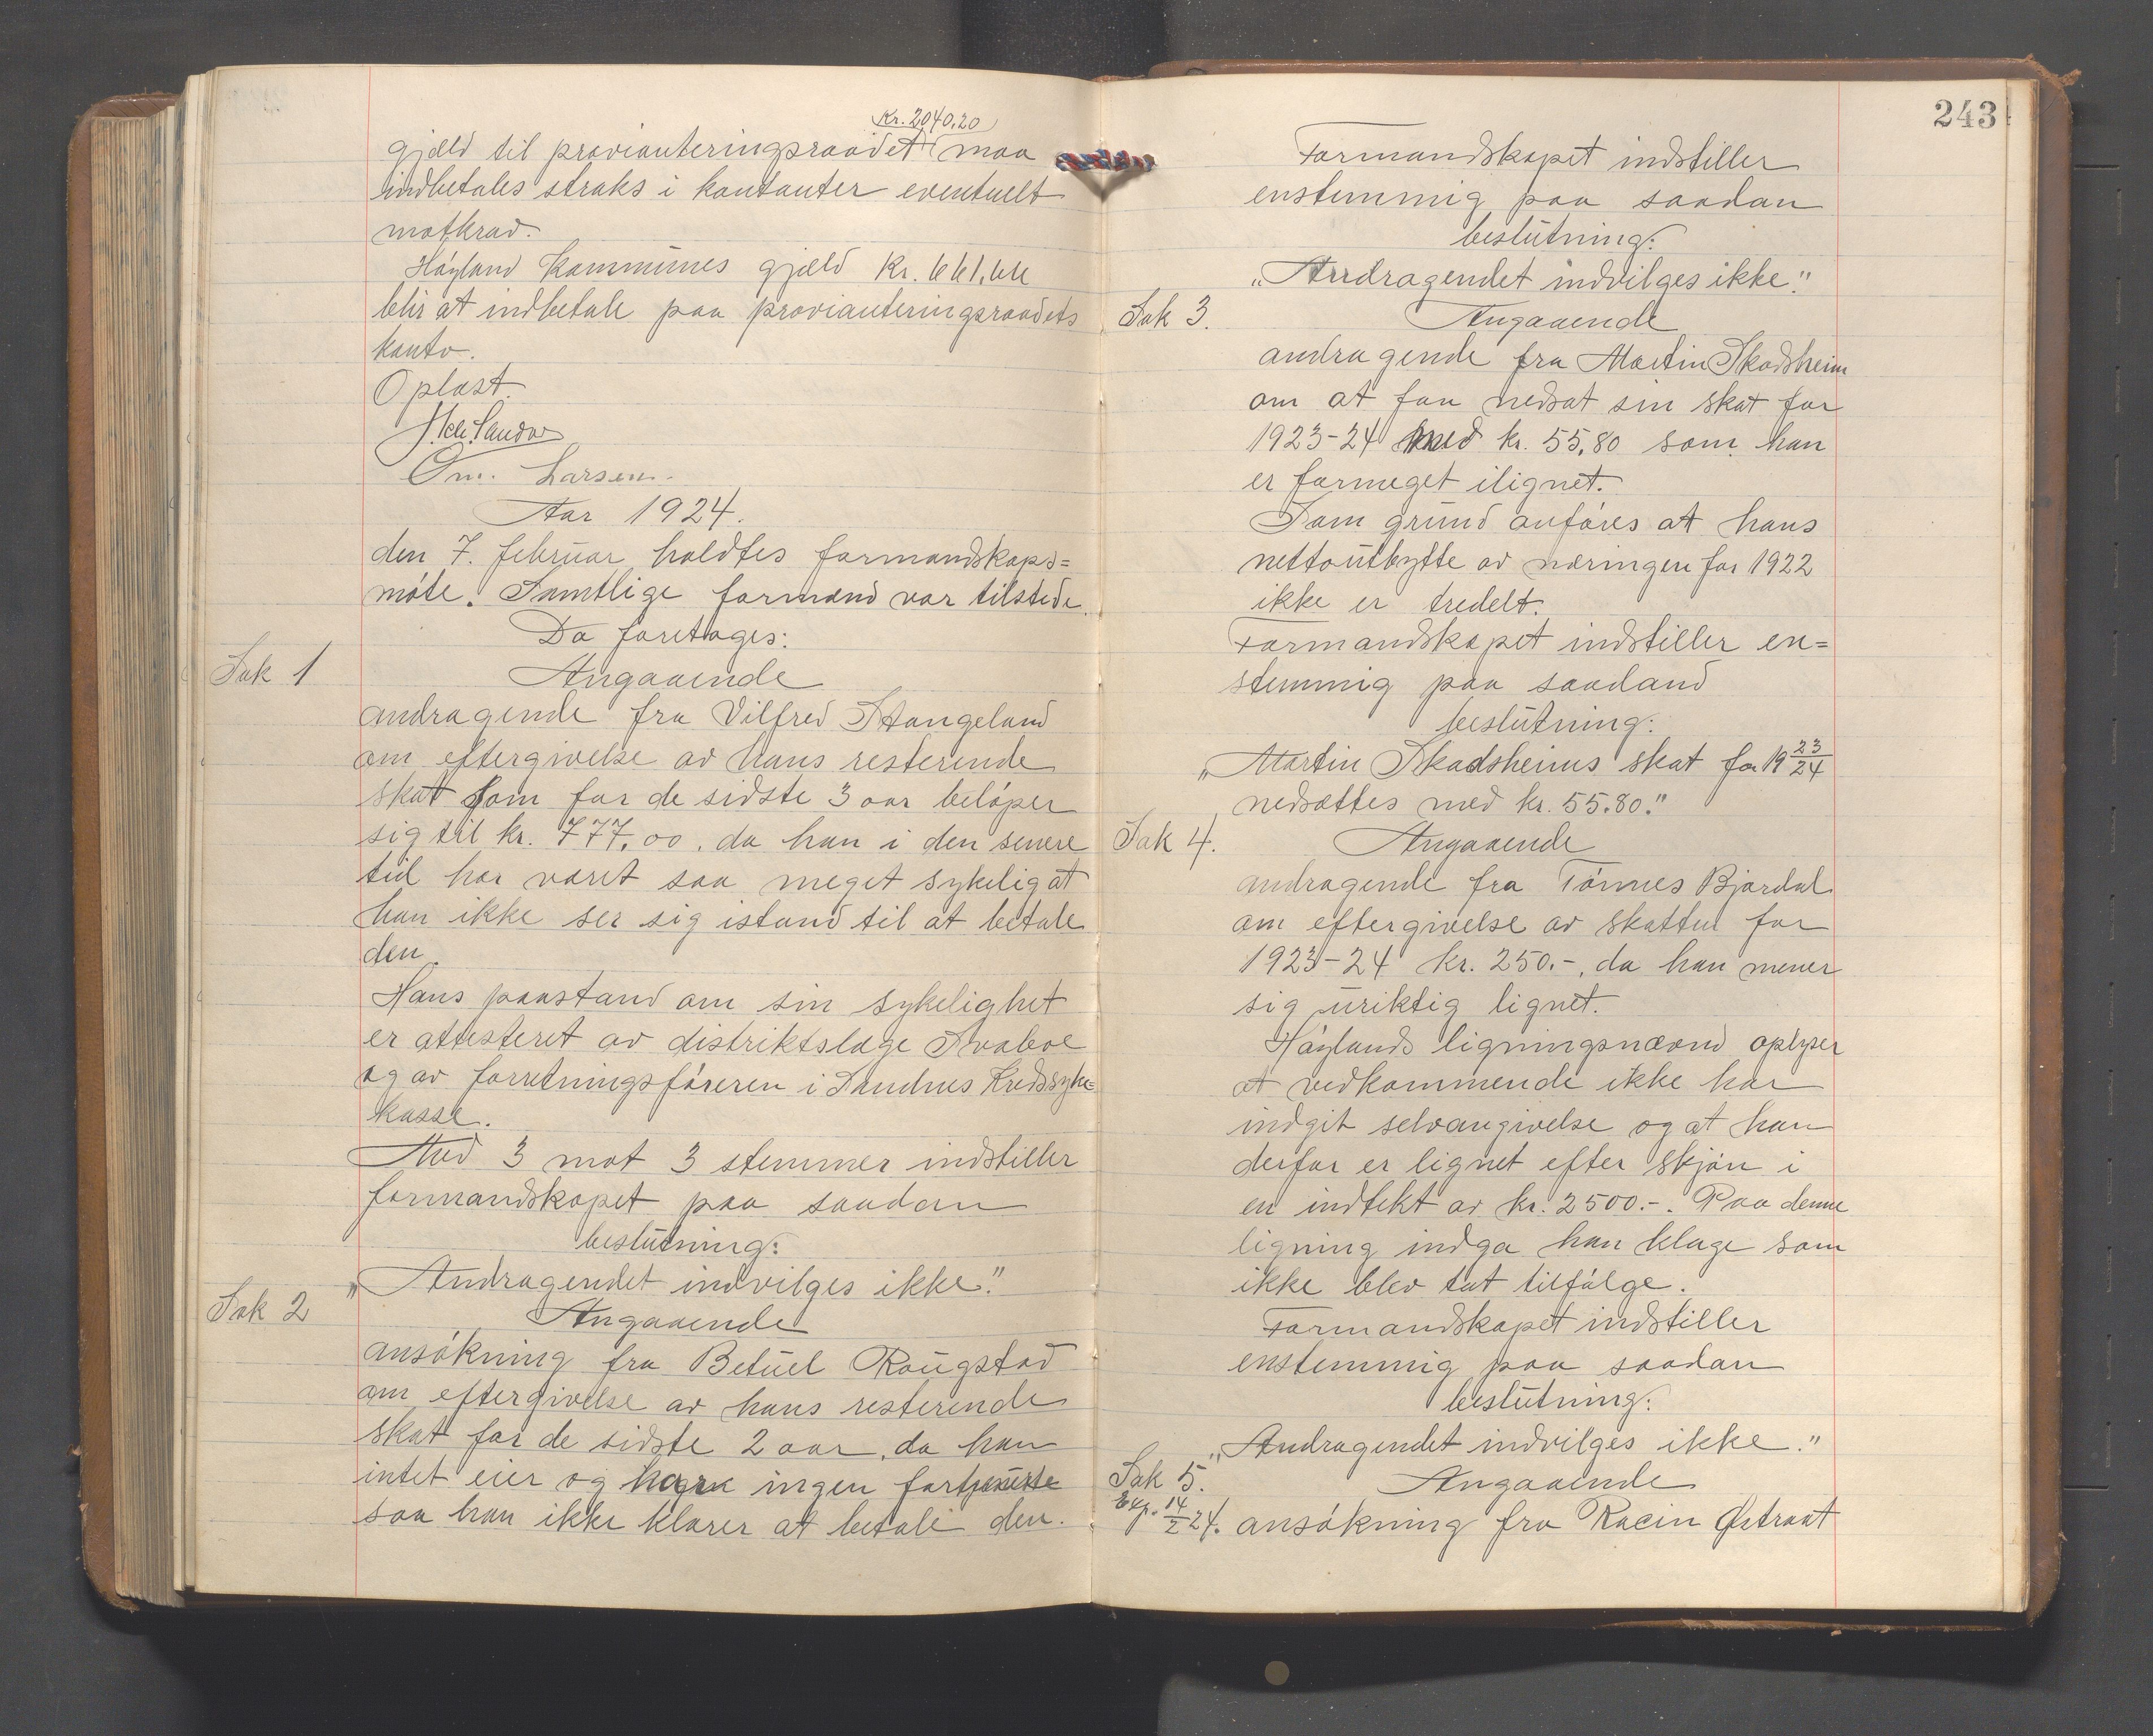 Kr. 2040.20
gjæld til provianteringsraadet maa
indbetales straks i kontanter eventuelt
motkrav.
Høyland kommunes gjæld kr. 661,66
blir at indbetale paa provianteringsraadets
konto.
Oplæst.
Om. Larsen.
Aar 1924.
den 7. februar holdtes formandskaps=
møte. Samtlige formænd var tilstede.
Da foretages:
Sak 1
Angaaende
andragende fra Vilfred Stangeland
om eftergivelse av hans resterende
skat som for de sidste 3 aar beløper
sig til kr. 777,00. da han i den senere
tid har været saa meget sykelig at
han ikke ser sig istand til at betale
den.
Hans paastand om sin sykelighet
er attesteret av distriktslæge Svaboe
og av forretningsføreren i Sandnes Kredssyke=
kasse.
Med 3 mot 3 stemmer indstiller
formandskapet paa saadan
beslutning:
„Andragendet indvilges ikke."
Sak 2
Angaaende
ansøkning fra Betuel Rougstad
om eftergivelse av hans resterende
skat for de sidste 2 aar, da han
intet eier og har ingen fortjeneste
saa han ikke klarer at betale den.
243
Formandskapet indstiller
enstemmig paa saadan
beslutning:
„Andragendet indvilges ikke."
Sak 3.
Angaaende
andragende fra Martin Skadsheim
om at faa nedsat sin skat for
1923-24 med kr. 55,80 som han
er formeget ilignet.
Som grund anføres at hans
nettoutbytte av næringen for 1922
ikke er tredelt.
Formandskapet indstiller en=
stemmig paa saadand
beslutning:
„Martin Skadsheims skat for 19 23/24
nedsættes med kr. 55.80."
Sak 4.
Angaaende
andragende fra Tønnes Bjordal
om eftergivelse av skatten for
1923-24 kr. 250.-, da han mener
sig uriktig lignet.
Høylands ligningsnævnd oplyser
at vedkommende ikke har
indgit selvangivelse og at han
derfor er lignet efter skjøn i
en indtekt av kr. 2500.-. Paa denne
ligning indga han klage som
ikke blev tat tilfølge.
Formandskapet indstiller
enstemmig paa saadan
beslutning:
„Andragendet indvilges ikke."
Sak 5.
Angaaende
Exp. 14/2 24.
ansøkning fra Racin Østraat